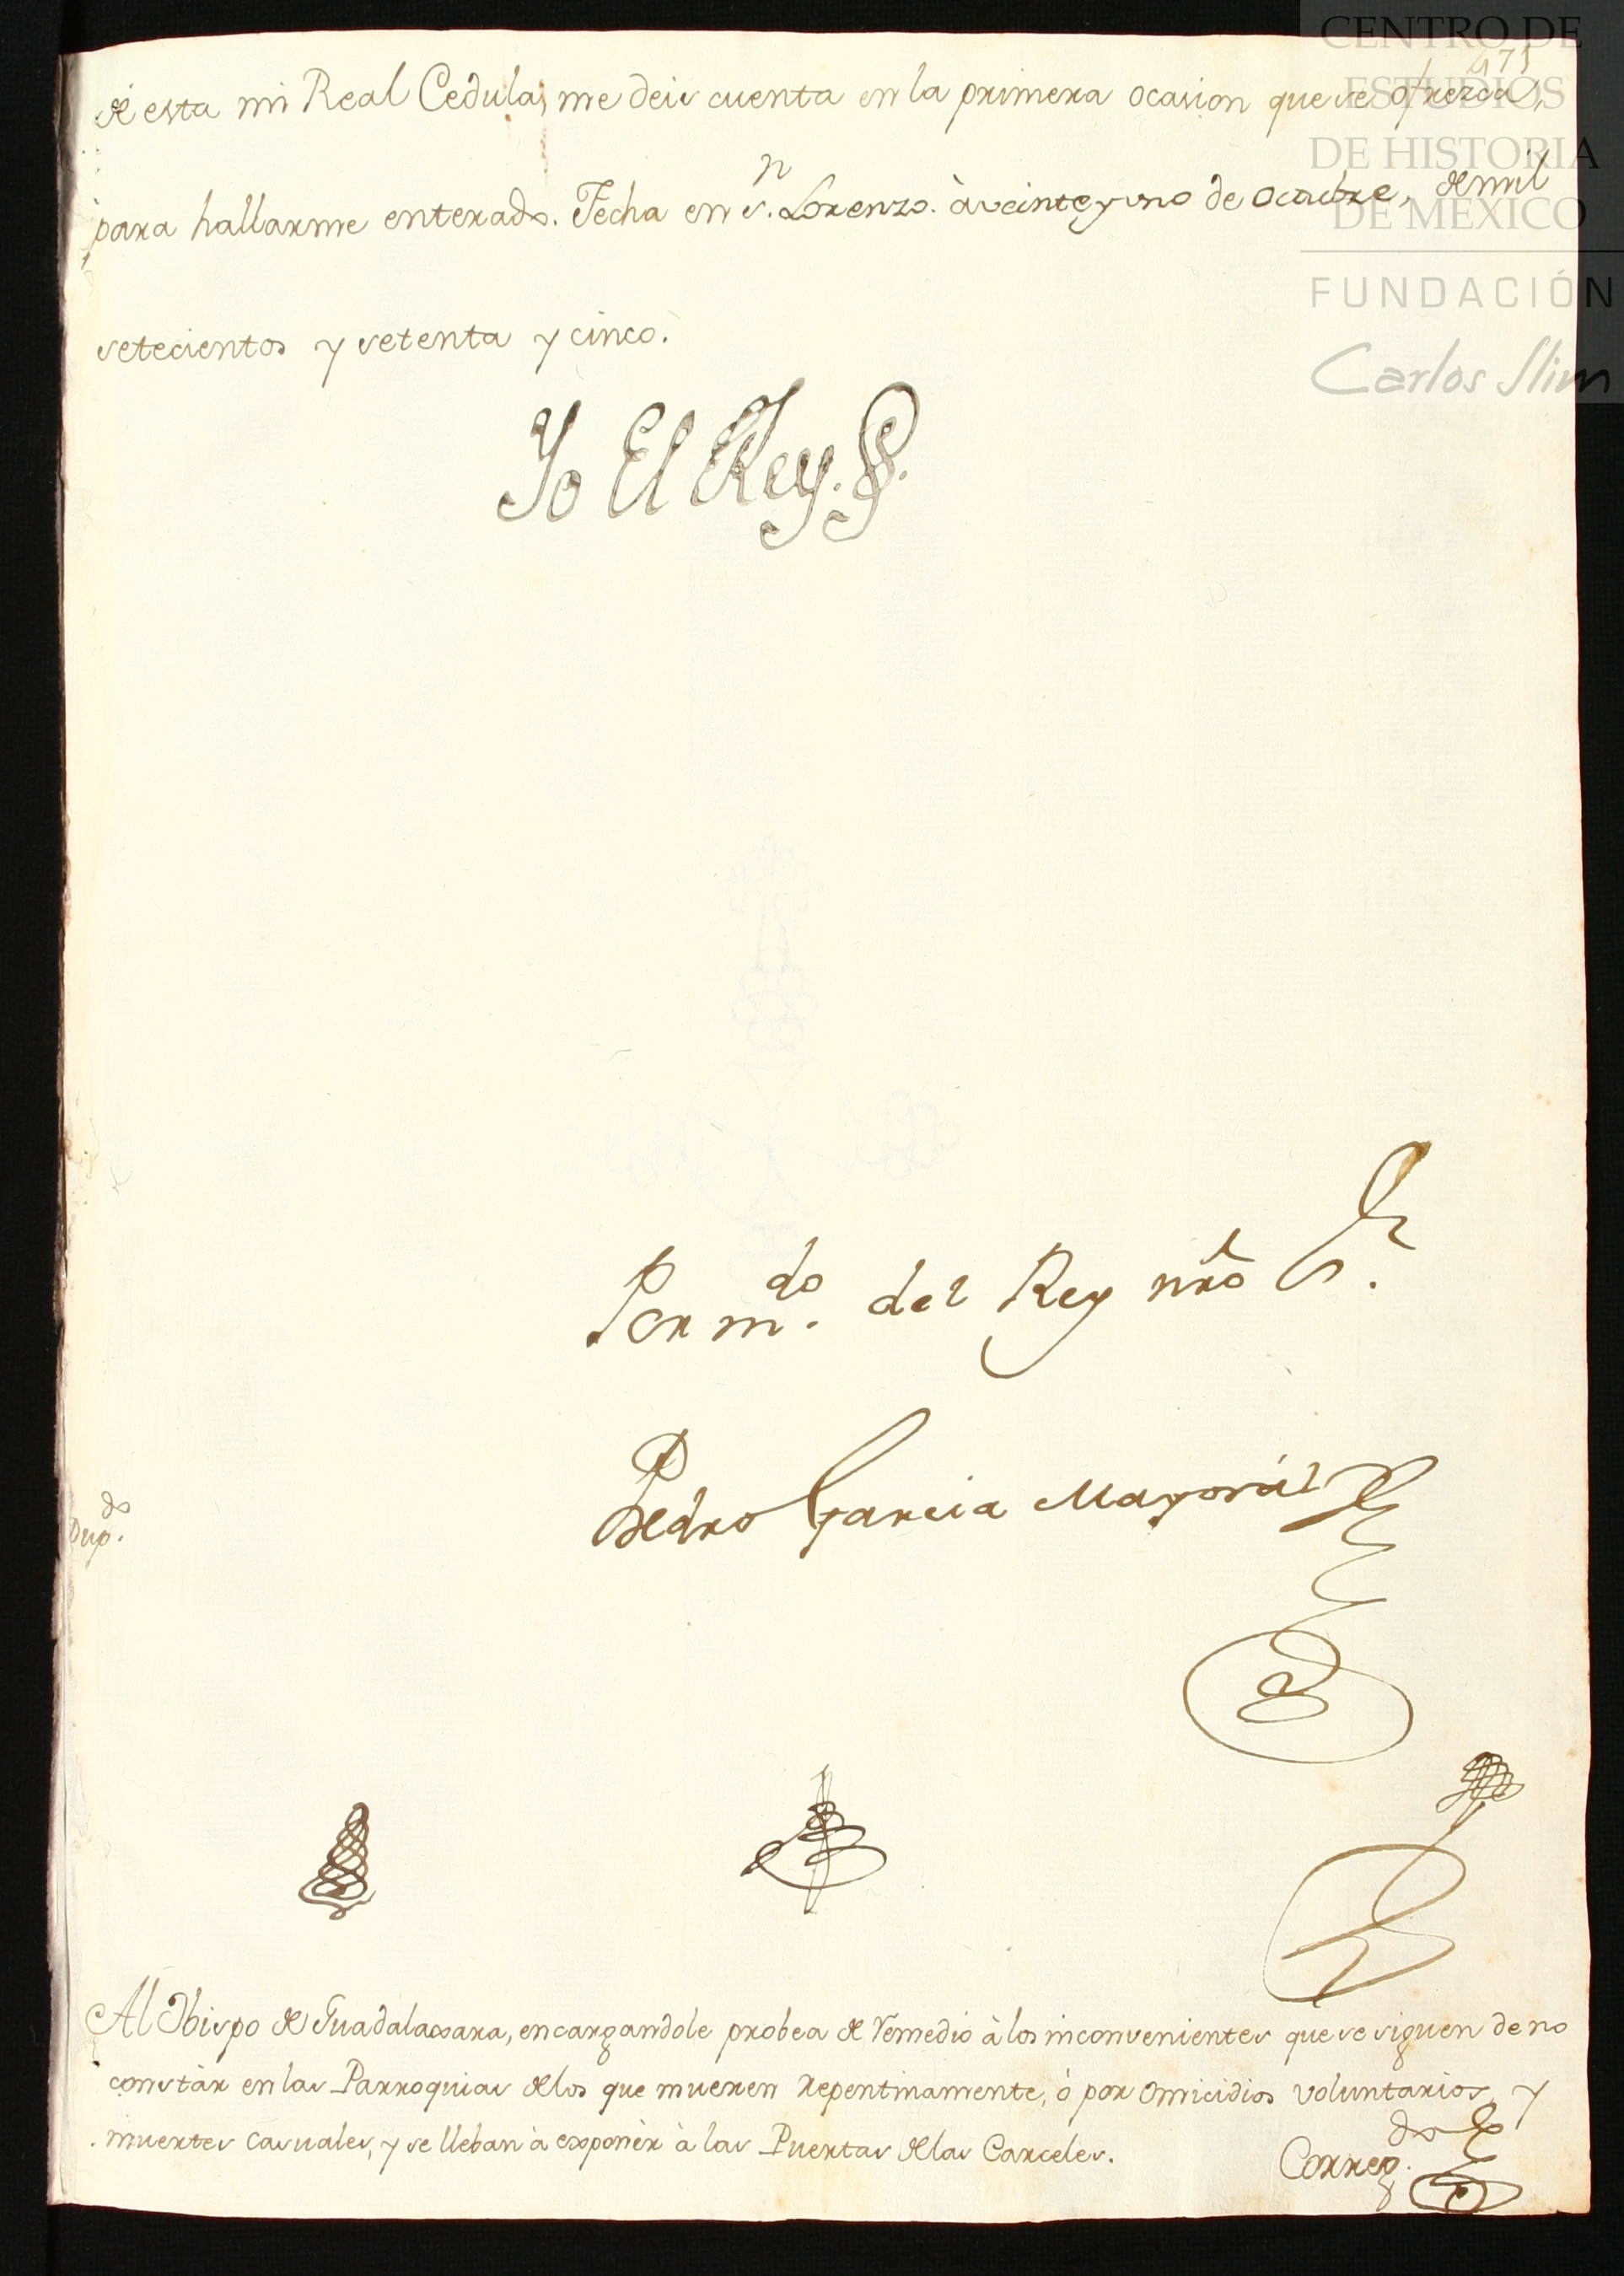 de esta mi Real Cedula, me deis cuenta en la primera ocasion que se ofrezca,
para hallarme enterado. Fecha en Sn. Lorenzo. à veinte y uno de Octubre, de mil
setecientos y setenta y cinco.
Yo El Rey.
Por mdo. del Rey nro Sr.
Pedro Garcia Mayorál
Dupdo.
Al Obispo de Guadalaxara, encargandole probea de remedio à los inconvenientes que se siguen de no
constàr en las Parroquias de los que mueren repentinamente, ò por omicidios voluntarios, y
muertes casuales, y se lleban à exponèr à las Puertas de las Carceles.
Corregdo.
CENTRO DE
ESTUDIOS
DE HISTORIA
DE MÉXICO
FUNDACIÓN
Carlos Slim